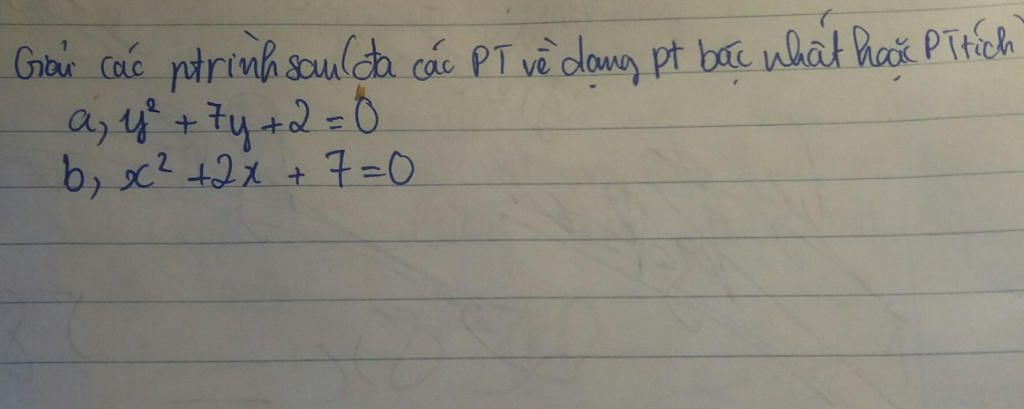 Giải các ptrình sau (đa các PT về dạng pt bậc nhất hoặc PT tích)
a, y² + 7y + 2 = 0
b, x² + 2x + 7 = 0